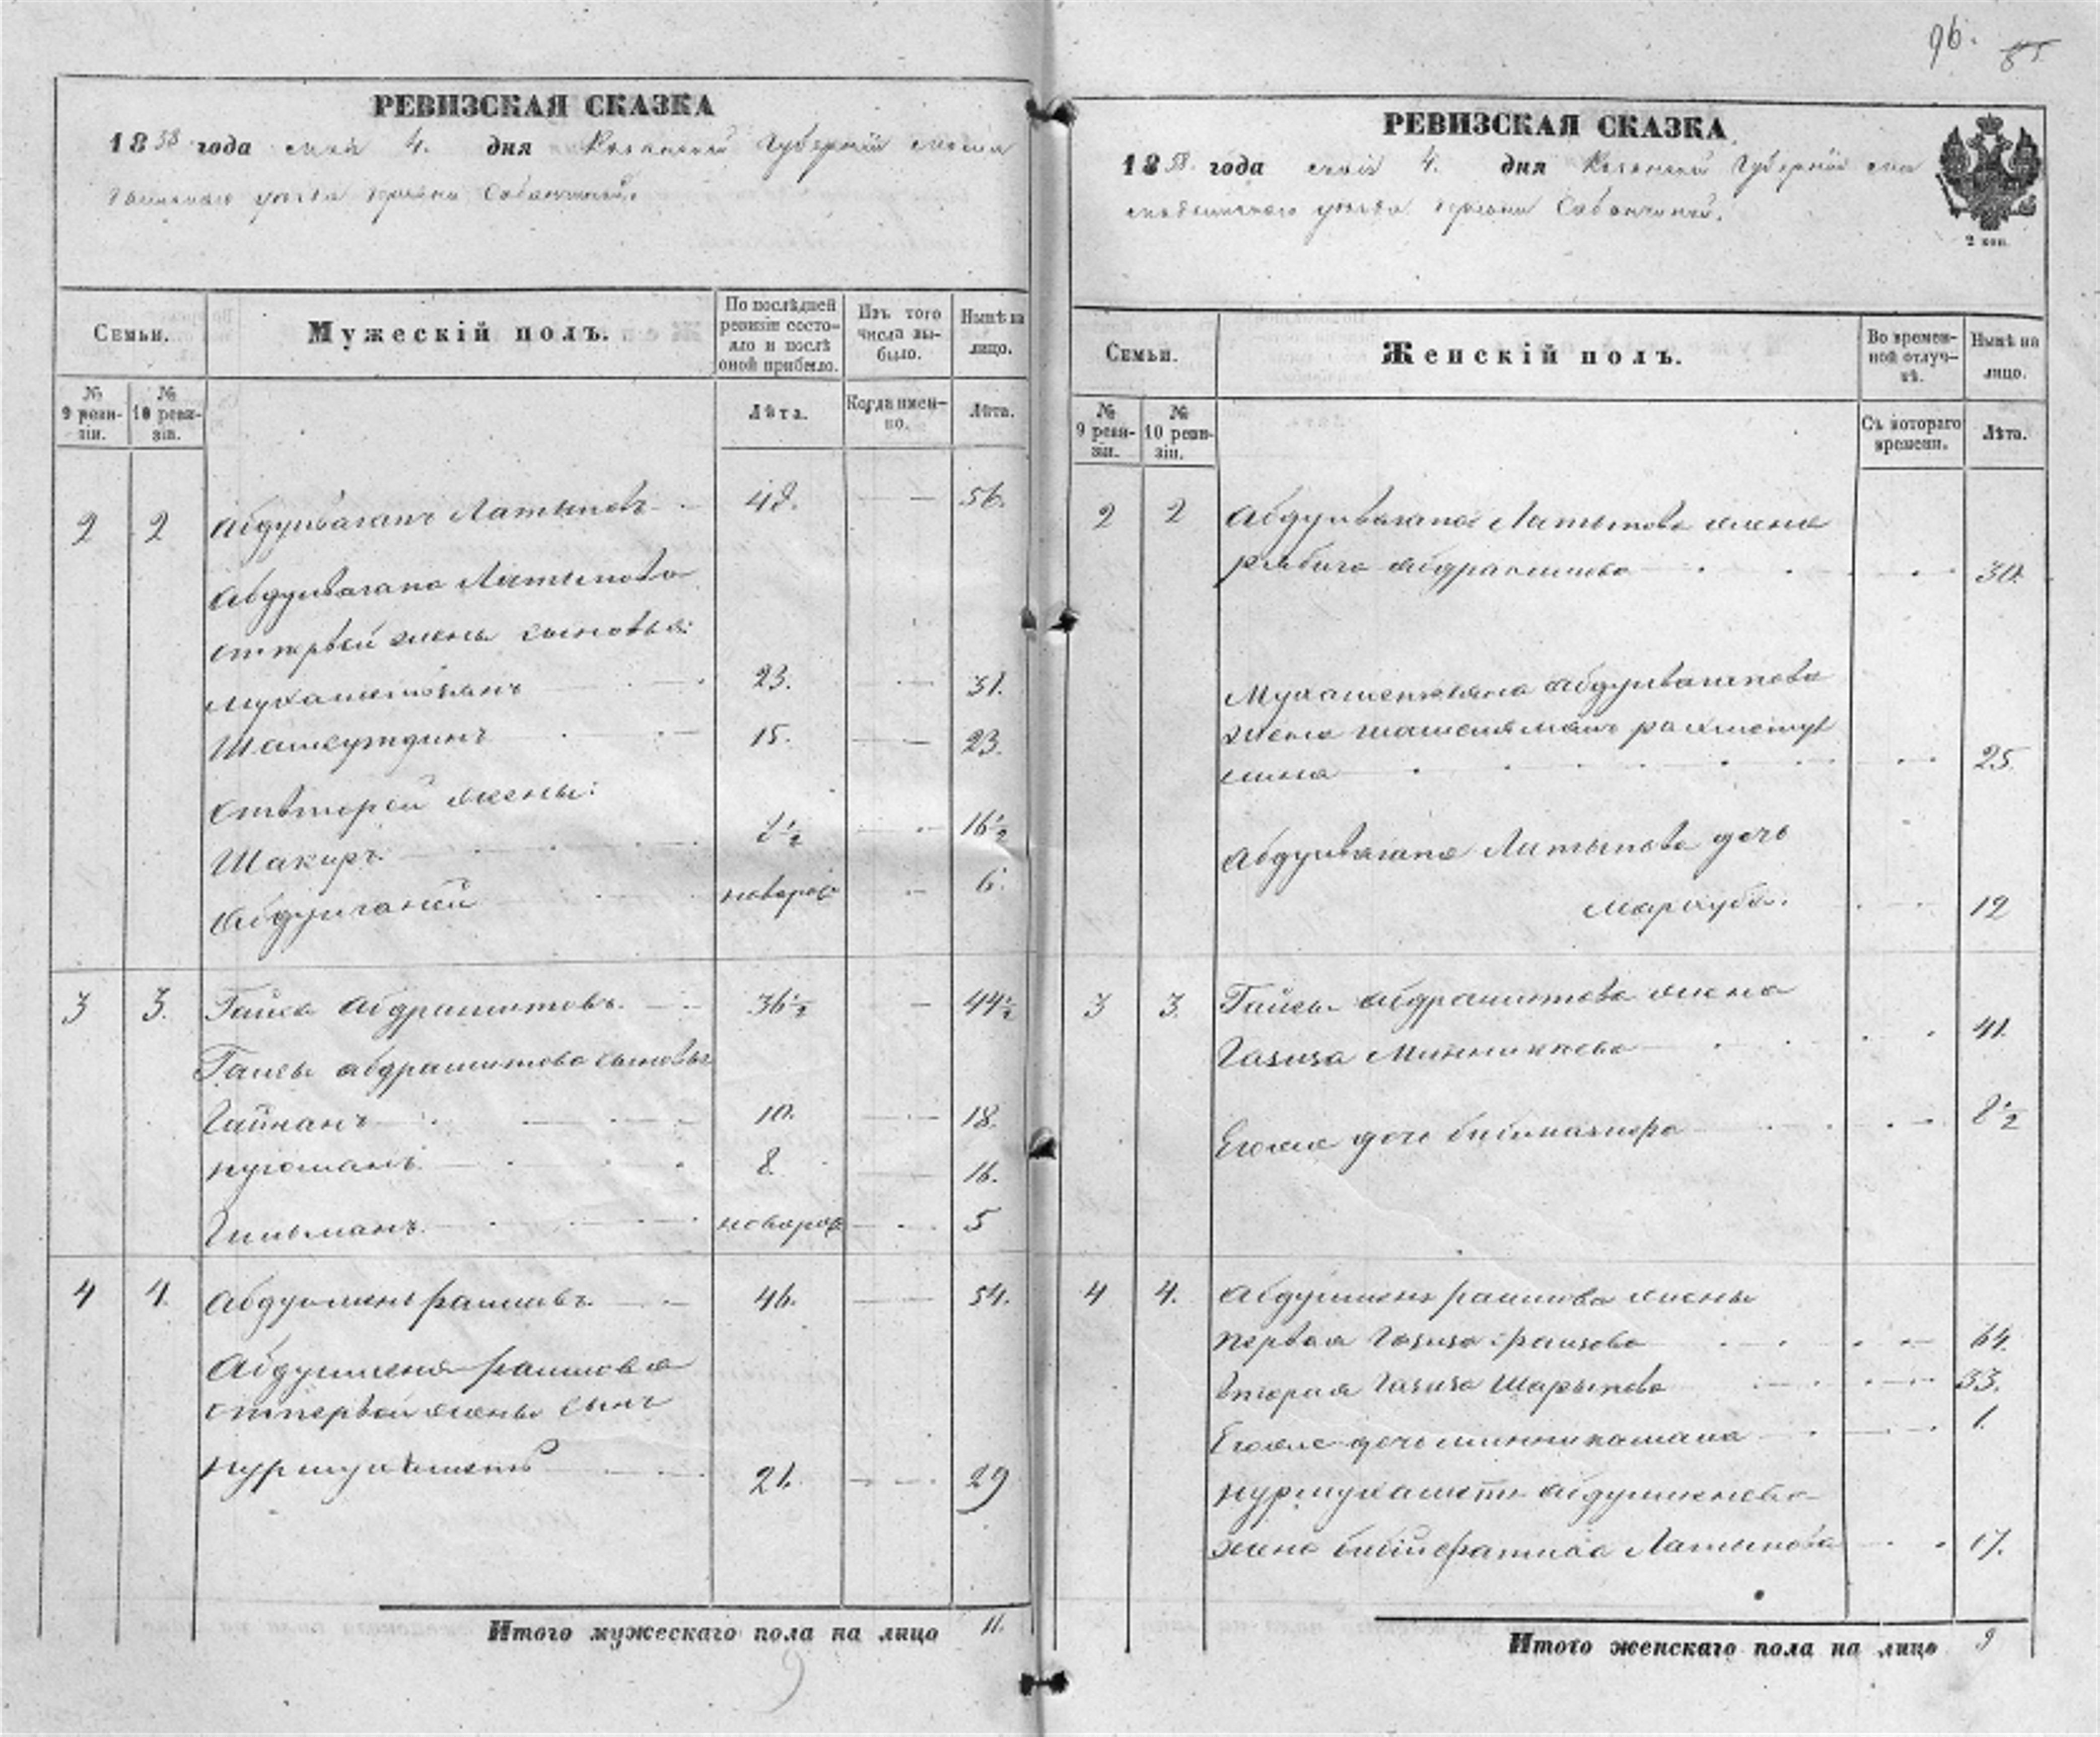 96.
85
РЕВИЗСКАЯ СКАЗКА
1858 года мая 4. дня Казанской Губернии Мама
дышскаго уезда деревни Сабанчиной.
Семьи.
Мужескій полъ.
По послѣдней ревизіи состояло и послѣ оной прибыло.
Изъ того числа выбыло.
Нынѣ на лицо.
№ 9 ревизіи.
№ 10 ревизіи.
Лѣта.
Когда именно.
Лѣта.
2 2 Абдулвагапъ Латыповъ 48. 56.
Абдулвагапа Латыпова
от первой жены сыновья:
Мухаметзянъ 23. 31.
Шамсутдинъ 15. 23.
От второй жены:
Шакиръ 8½ 16½
Абдулганей новорож 6.
3 3. Гайса Абдрашитовъ 36½ 44½
Гайсы Абдрашитова сыновья
Гайнанъ 10. 18.
Нугоманъ 8. 16.
Гильманъ новорож 5
4 4. Абдулменъ 46. 54.
Абдулменя
от первой жены сынъ
Нурмухаметъ 21. 29
Итого мужескаго пола на лицо 11.
РЕВИЗСКАЯ СКАЗКА
1858 года мая 4. дня Казанской Губернии Ма
мадышскаго уезда деревни Сабанчиной.
2 коп.
Семьи.
Женскій полъ.
Во временной отлучкѣ.
Нынѣ на лицо.
№ 9 ревизіи.
№ 10 ревизіи.
Съ котораго времени.
Лѣта.
2 2 Абдулвагапа Латыпова жена
Рябига 30.
Мухаметзяна Абдулвагапова
жена
лина 25.
Абдулвагапа Латыпова дочь
12
3 3. Гайсы Абдрашитова жена
Газиза Минникаева 41.
Егоже дочь Бибиназира 8½
4 4. Абдулменя жены
первая Газиза 64.
вторая Газиза Шарыпова 33.
Егоже дочь Минникамала 1.
Нурмухаметя Абдулменева
жена Латыпова 17.
Итого женскаго пола на лицо 9